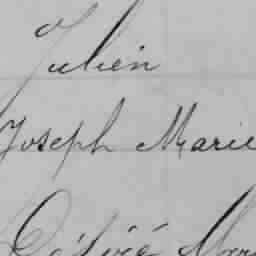 Julien
Joseph Marie
Désiré